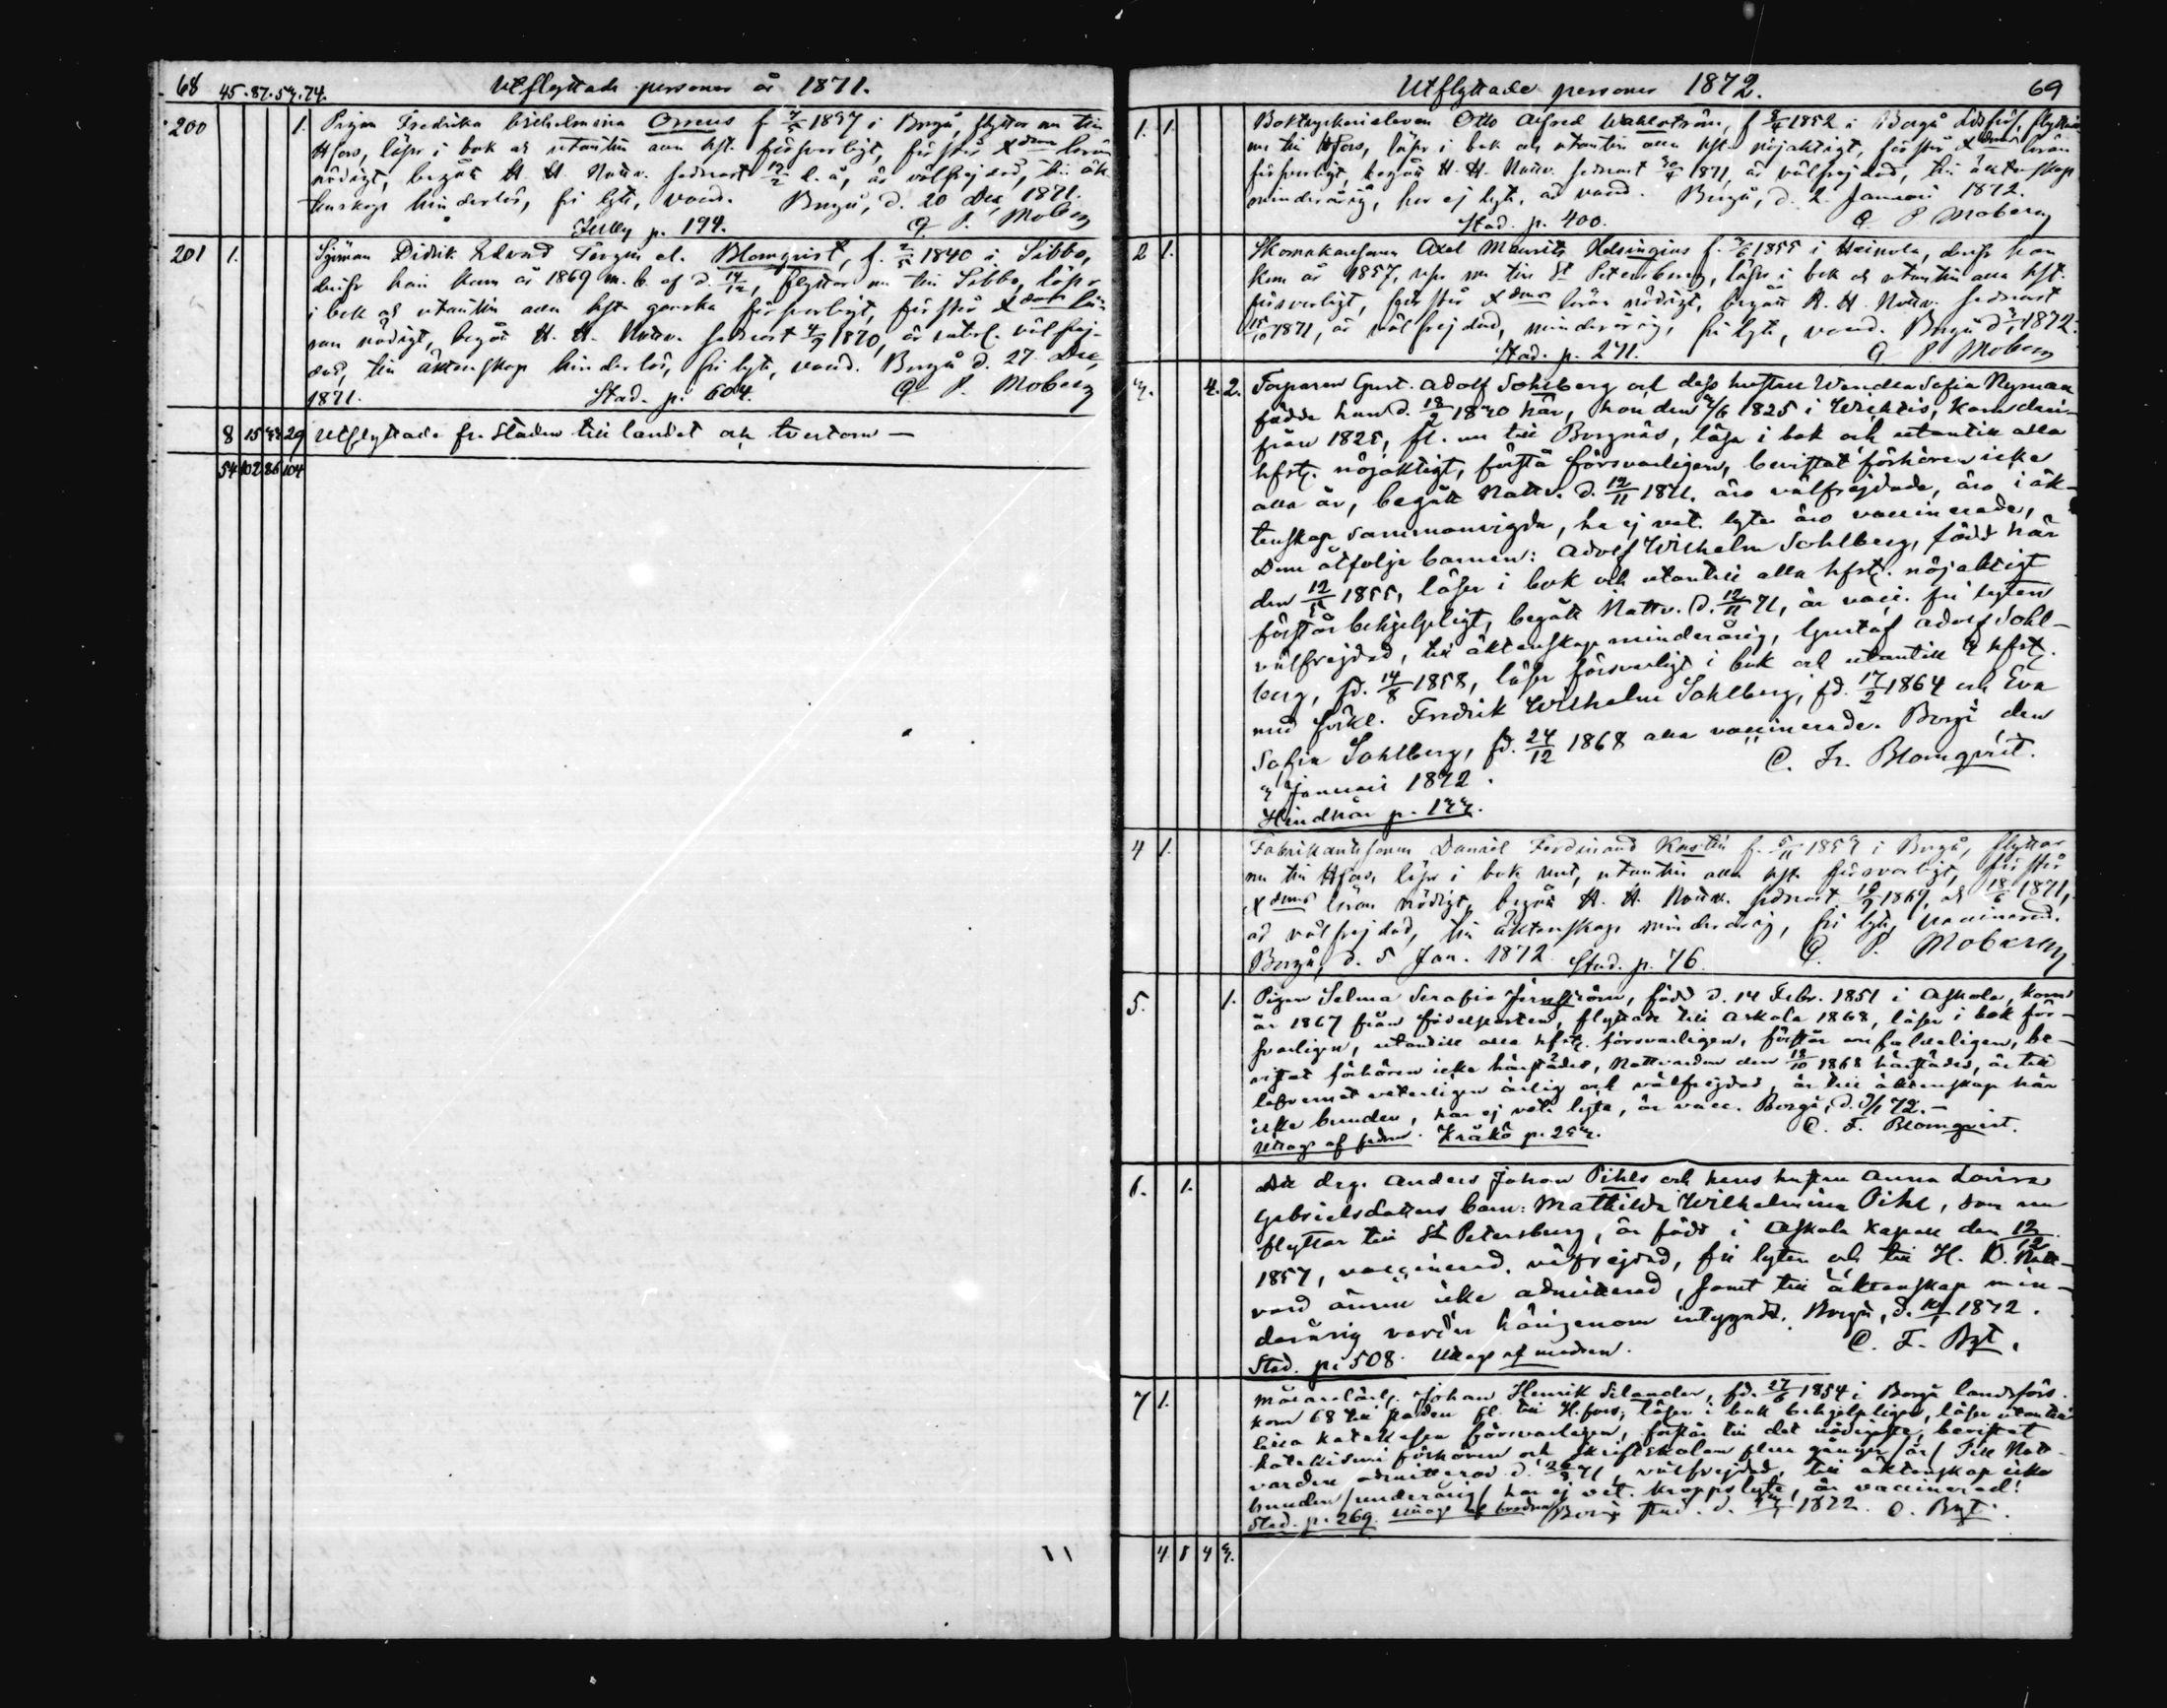 68 45. 87. 57. 74. Utflyttade personer år 1871.
200 1. Pigan Fredrika Wilhelmina Orrens f. 1837 i Borgå, flyttar nu till
Hfors, läser i bok och utantill alla hft. försvarligt, förstår Xdoms läran
nödigt, begått H. H. Nattv. sednast 12/2 d. å., är välfrejdad, till äk-
tenskap hinderlös, fri lyte, vaccd. Borgå, d. 20 Dec, 1871.
p. 194. G. P. Moberg
201 1. Sjöman Didrik Edvard el. Blomqvist, f. 2/5 1840 i Sibbo,
derifr. han kom år 1869 m. b. af d. 14/12, flyttar nu till Sibbo, läser
i bok och utantill alla hft. ganska försvarligt, förstår Xdoms lä-
ran nödigt, begått H. H. Nattv. sednast 4/9 1870, är välfrej-
dad, till äktenskap hinderlös, fri lyte, vaccd. Borgå d. 27 Dec,
1871. Stad. p. 604. G. P. Moberg
8 15 29 Utflyttade fr. Staden till landet och tvertom —
54 102 86 104
Utflyttade personer 1872. 69
1. 1. Boktryckerieleven Otto Alfred Wahlström, f. 1852 i Borgå Ldsförs, flyttar
nu till Hfors, läser i bok och utantill alla hft. nöjaktigt, förstår Xdoms läran
försvarligt, begått H. H. Nattv. sednast 30/4 1871, är välfrejdad, till äktenskap
minderårig, har ej lyte, är vaccd. Borgå, d. 2 Januari 1872.
Stad. p. 400. G. P. Moberg
2 1. Skomakaresonen Axel Maurits Helsingius f. 1855 i Heinola, derifr. han
kom år 1857, nu till St Petersburg, läser i bok och utantill alla hft.
försvarligt, förstår Xdoms läran nödigt, begått H. H. Nattv. sednast
15/10 1871, är välfrejdad, minderårig, fri lyte, vaccd. Borgå d. 1872.
Stad. p. 271. G. P. Moberg
3. 4. 2. Torparen Gust. Adolf Sohlberg och dess hustru Wendla Sofia Nyman
födde han d. 18/2 1830 här, hon den 1825 i Wichtis, kom deri-
från 1825, fl. nu till Borgnäs, läsa i bok och utantill alla
hfstn. nöjaktigt, förstå försvarligen, bevistat förhören icke
alla år, begått Nattv. d. 12/11 1871. äro välfrejdade, äro i äk-
tenskap sammanvigda, ha ej vet. lyte äro vaccinerade,
Dem åtfölja barnen: Adolf Wilhelm Sohlberg, född här
den 12/5 1855, läser i bok och utantill alla hfstn. nöjaktigt
förstår behjelpligt, begått Nattv. d. 12/11 71, är vacc. fri lyten
välfrejdad, till äktenskap minderårig, Gustaf Adolf Sohl-
berg, fd. 14/8 1858, läser försvarligt i bok och utantill 3 hfstn.
med förkl. Fredrik Wilhelm Sohlberg, fd. 17/2 1864 och Eva
Sofia Sohlberg, fd. 24/12 1868 alla vaccinerade. Borgå den
3 Januari 1872. C. Fr. Blomqvist.
Hindhår p. 133.
4 1. Fabrikantsonen Daniel Ferdinand Kastén f. 5/11 1853 i Borgå, flyttar
nu till Hfors, läser i bok rent, utantill alla hft. försvarligt, förstår
Xdoms läran nödigt, begått H. H. Nattv. sednast 1869, och 18/6 1871,
är välfrejdad, till äktenskap minderårig, fri lyte, vaccinerad.
Borgå, d. 5 Jan. 1872 Stad. p. 76. G. P. Moberg
5. 1. Pigan Selma Serafia Jernström, född d. 14 Febr. 1851 i Askola, kom
år 1867 från födelseorten, flyttade till Askola 1868, läser i bok för-
svarligen, utantill alla hfstn. försvarligen, förstår enfaldeligen, be-
vistat förhören icke härstädes, Nattvarden den 18/10 1868 härstädes, är till
lefvernet veterligen ärlig och välfrejdad, är till äktenskap här
icke bunden, har ej vet. lyte, är vacc. Borgå, d. 9/1 72.—
Uttags af fadren. Kråkö p. 253. C. F. Blomqvist.
6. 1. Att drg. Anders Johan Pihls och hans hustru Anna Lovisa
Gabrielsdotters barn: Mathilda Wilhelmina Pihl, som nu
flyttar till St Petersburg, är född i Askola kapell den 12/12
1857, vaccinerad, välfrejdad, fri lyten och till H. H. Natt-
vard ännu icke admitterad, samt till äktenskap min-
derårig varder härigenom intygadt. Borgå, d. 10/1 1872.
Stad. p. 508. Uttags af modren. C. F. Bqt.
7 1. Målarelärl. Johan Henrik Silander, fd. 27/6 1854 i Borgå landsförs.
kom 68 till staden fl. till H.fors, läser i bok behjelpligen, läser utantill
lilla katekesen försvarligen, förstår till det nödigaste, bevistat
katekismi förhören och skriftskolan flera gånger/år/ Till Natt-
varden admitterad d. 71, välfrejdad, till äktenskap icke
bunden /underårig/ har ej vet. kroppslyte, är vaccinerad.
Stad. p. 269. Uttags af Borgå stad. d. 1872. C. Bqt.
4 1 4 3.